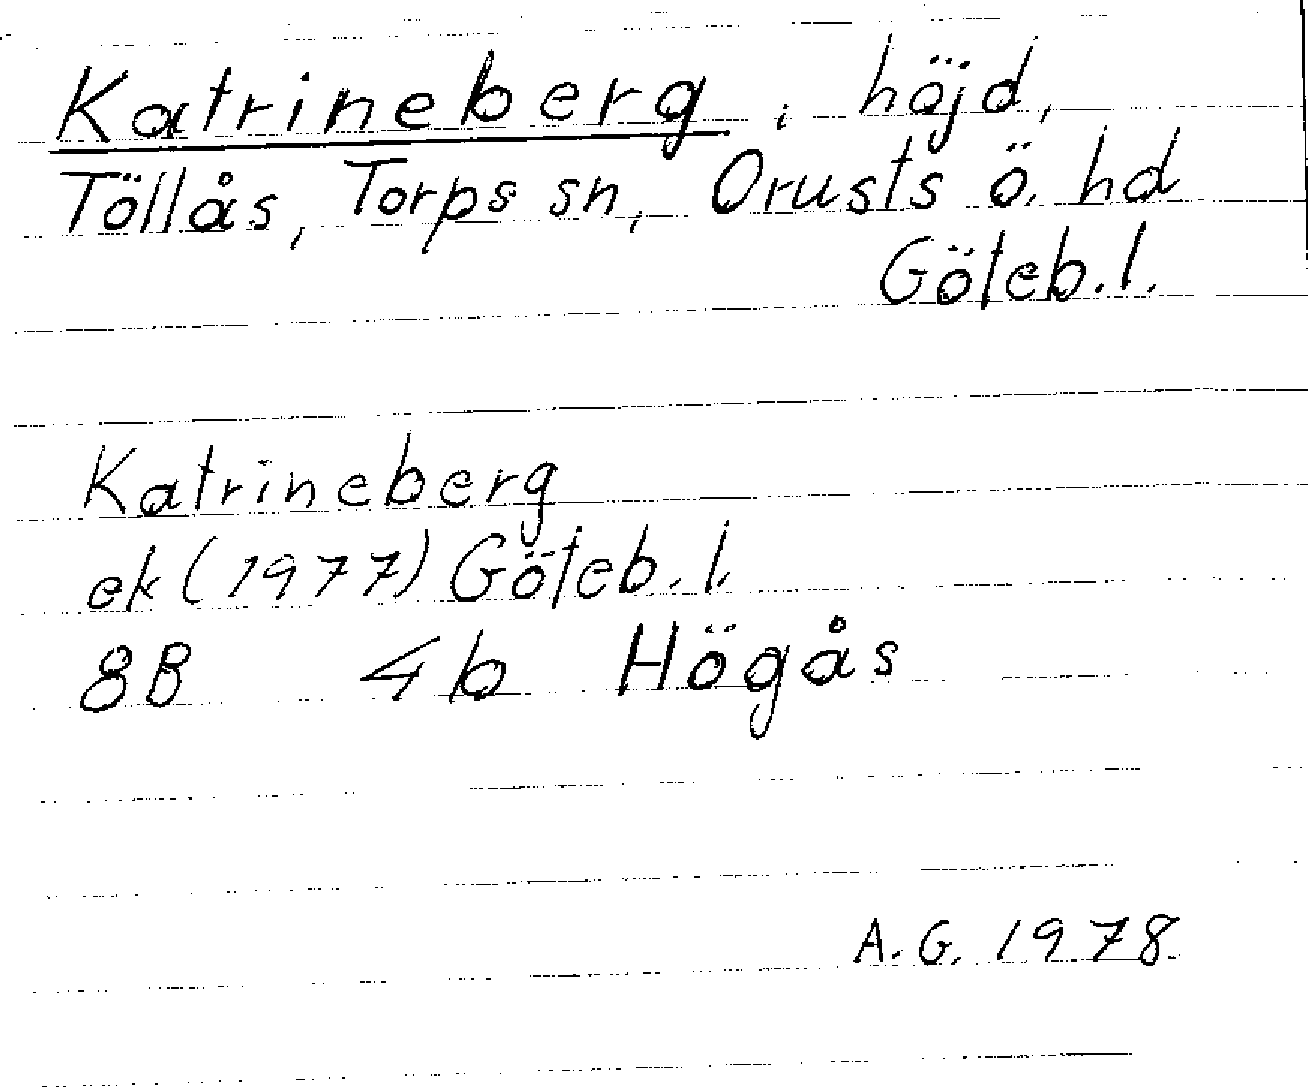 Katrineberg, höjd,
Töllås, Torps sn, Orusts ö. hd
Göteb. l.
Katrineberg
ek (1977) Göteb. l.
8B 4b Högås
A. G. 1978